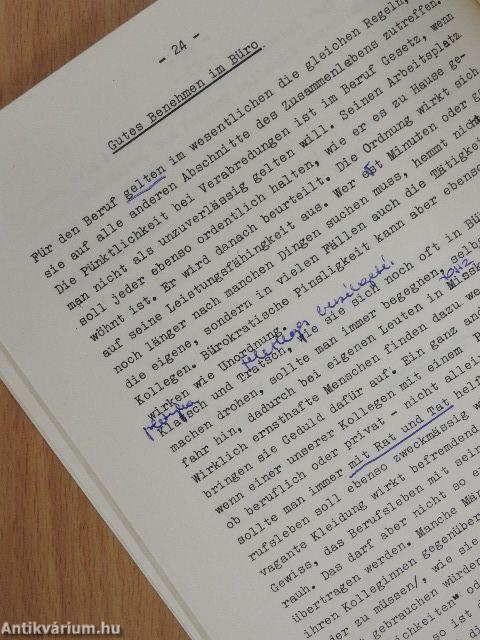 - 24 -
Gutes Benehmen im Büro.
Für den Beruf gelten im wesentlichen die gleichen Regeln,
sie auf alle anderen Abschnitte des Zusammenlebens zutreffen.
Die Pünktlichkeit bei Verabredungen ist im Beruf Gesetz, wenn
man nicht als unzuverlässig gelten will. Seinen Arbeitsplatz
soll jeder ebenso ordentlich halten, wie er es zu Hause ge-
wöhnt ist. Er wird danach beurteilt. Die Ordnung wirkt sich
auf seine Leistungsfähingkeit aus. Wer Minuten oder
noch länger nach manchen Dingen suchen muss, hemmt nicht
die eigene, sondern in vielen Fällen auch die Tätigkei
Kollegen. Bürokratische Pinsligkeit kann aber ebenso
wirken wie Unordnung.
Klatsch und Tratsch, die sie sich noch oft in Bü
machen drohen, sollte man immer begegnen, selbs
fahr hin, dadurch bei eigenen Leuten in Missk
Wirklich ernsthafte Menschen finden dazu we
bringen sie Geduld dafür auf. Ein ganz and
wenn einer unserer Kollegen mit einem P
ob beruflich oder privat - nicht allei
sollte man immer mit Rat und Tat hel
rufsleben soll ebenso zweckmässig w
vagante Kleidung wirkt befremdend
Gewiss, das Berufsleben mit sein
rauh. Das darf aber nicht so e
übertragen werden. Manche Män
ihren Kolleginnen gegenüber
der zu müssen/, wie sie
gebrauchen würden
chkeiten" od
Antikvárium.hu